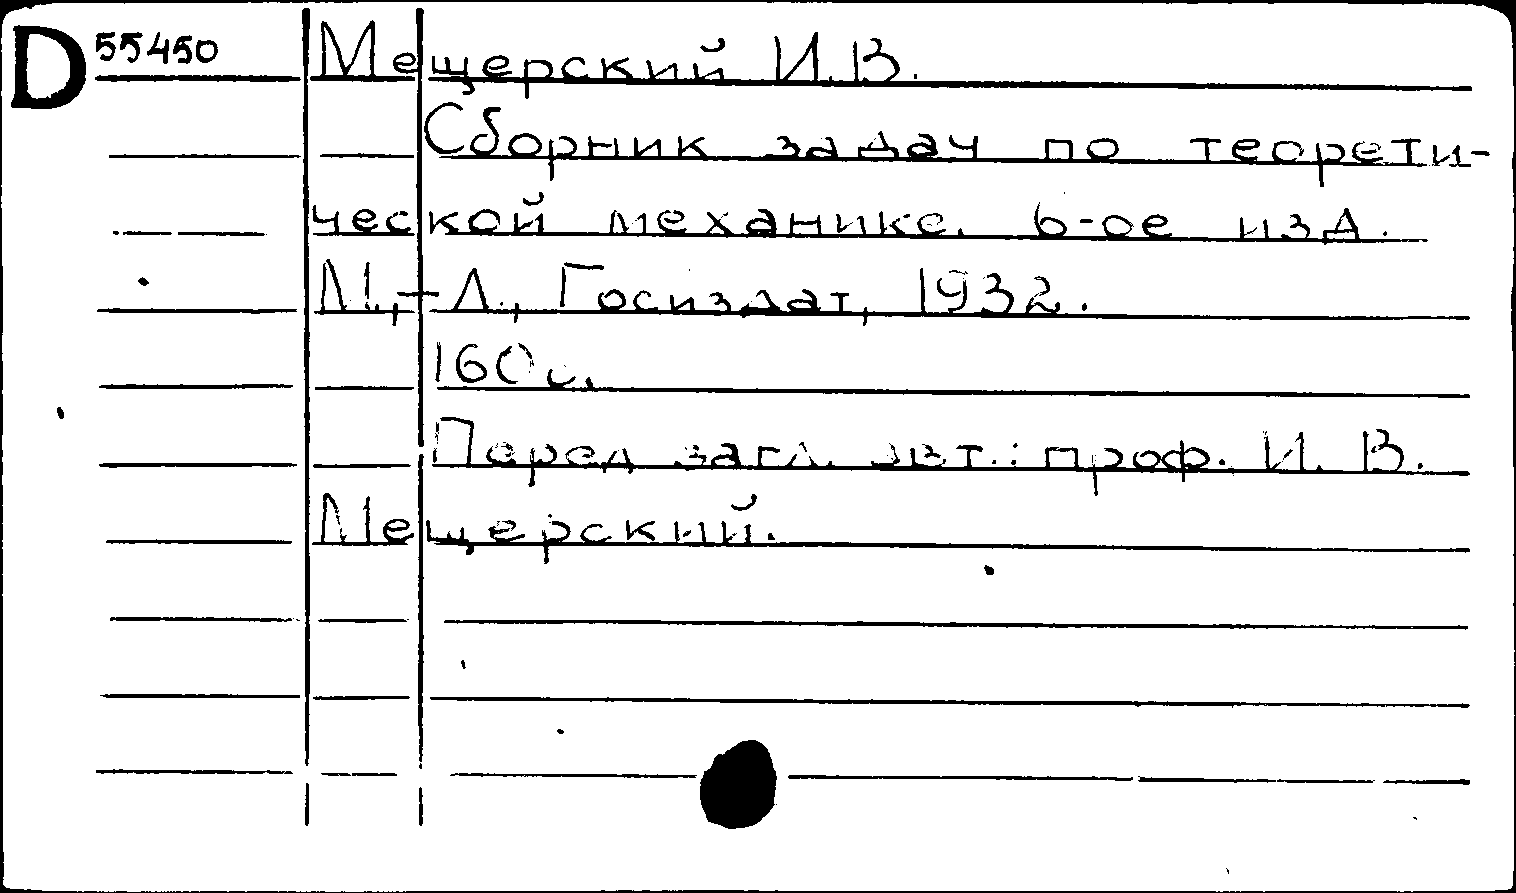 D 55450 Мещерский И.В.
Сборник задач по теорети-
ческой механике. 6-ое изд.
М.,-Л., Госиздат, 1932.
160 с.
Перед загл. авт.: проф. И. В.
Мещерский.